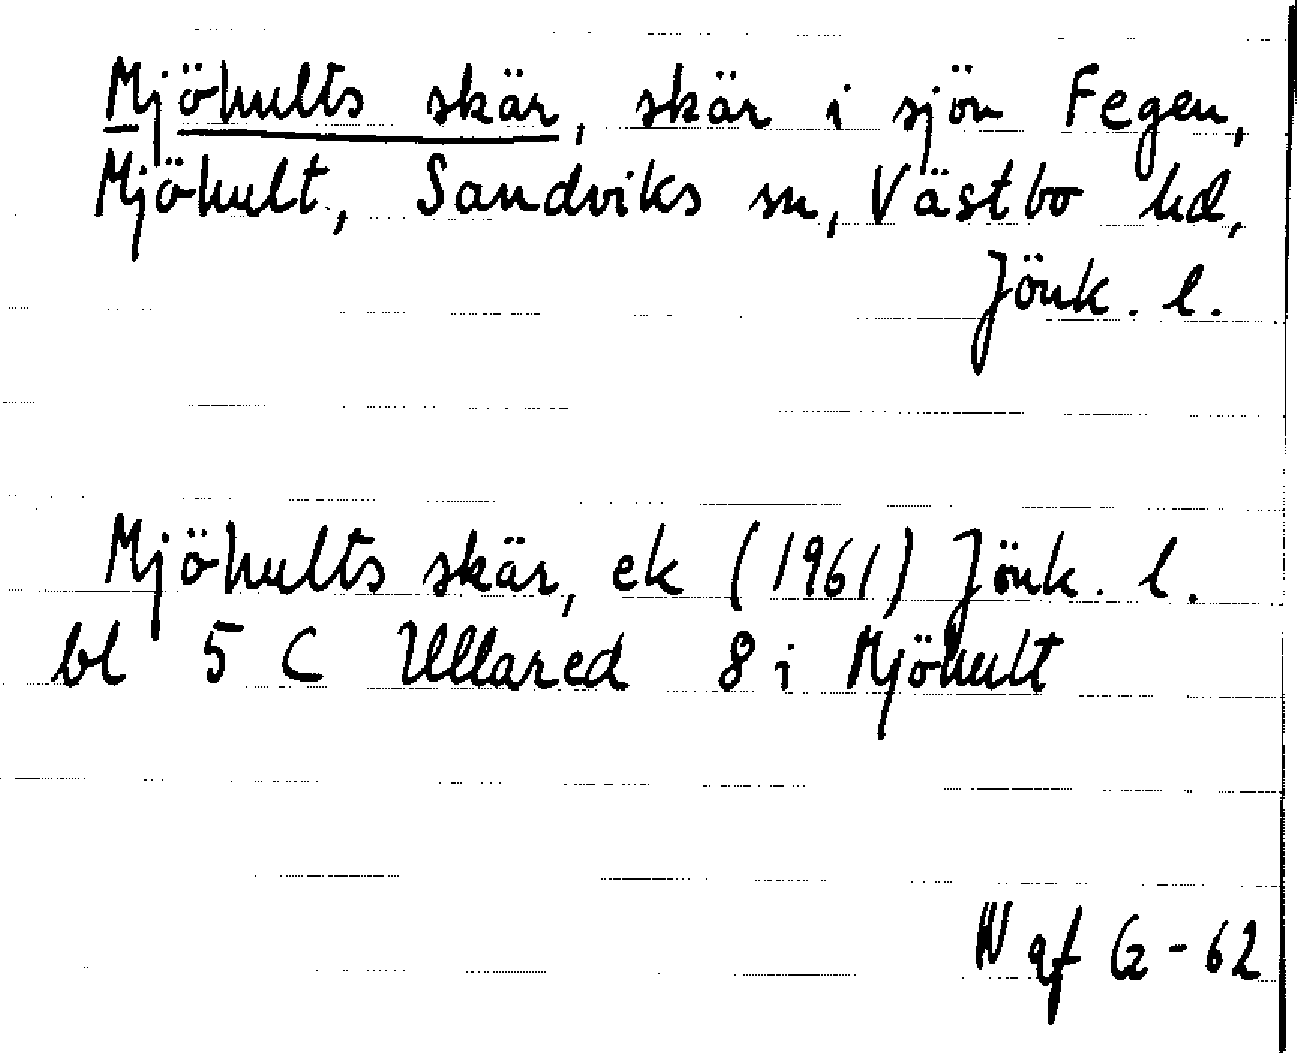 Mjöhults skär, skär i sjön Fegen,
Mjöhult, Sandviks sn, Västbo hd,
Jönk. l.
Mjöhults skär, ek (1961) Jönk. l.
bl 5 C Ullared 8 i Mjöhult
N af G-62